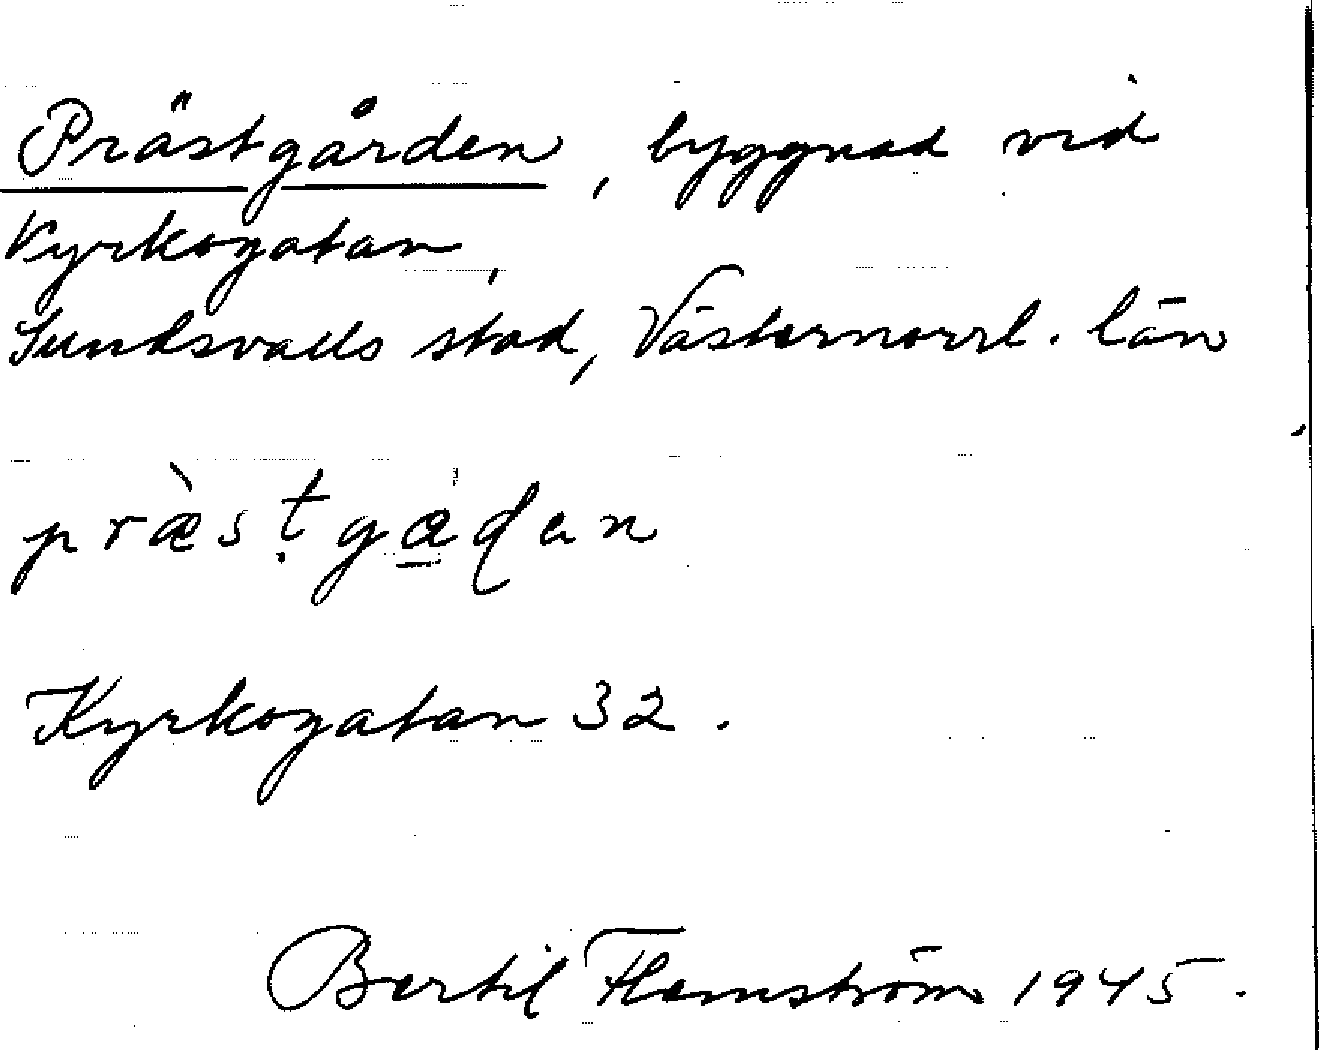 Prästgården, byggnad vid
Kyrkogatan,
Sundsvalls stad, Västernorrl. län
Kyrkogatan 32.
Bertil Flemström 1945.